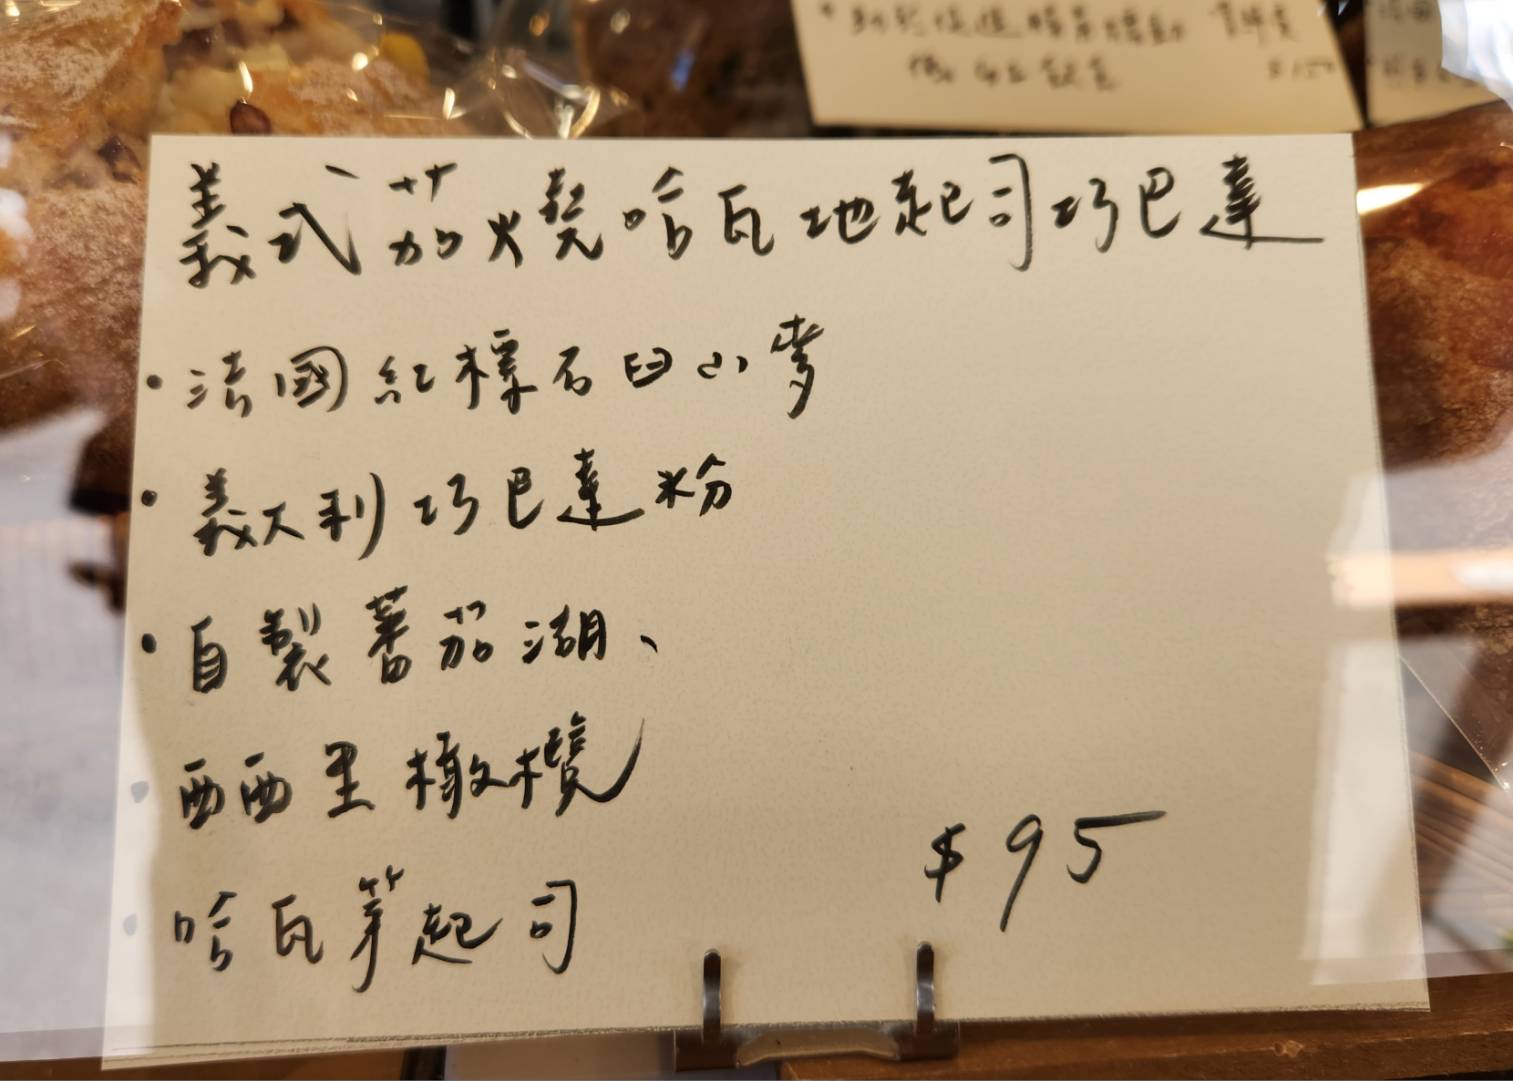 義式茄燒哈瓦地起司巧巴達
・法國紅標石臼小麥
・義大利巧巴達粉
・自製蕃茄湖、
西西里橄欖
哈瓦笫起司
$95